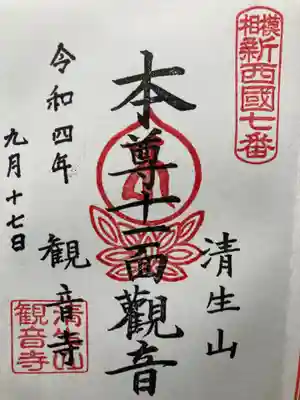 新西國七番
清生山
本尊十一面觀音
観音寺
令和四年
九月十七日
観音寺